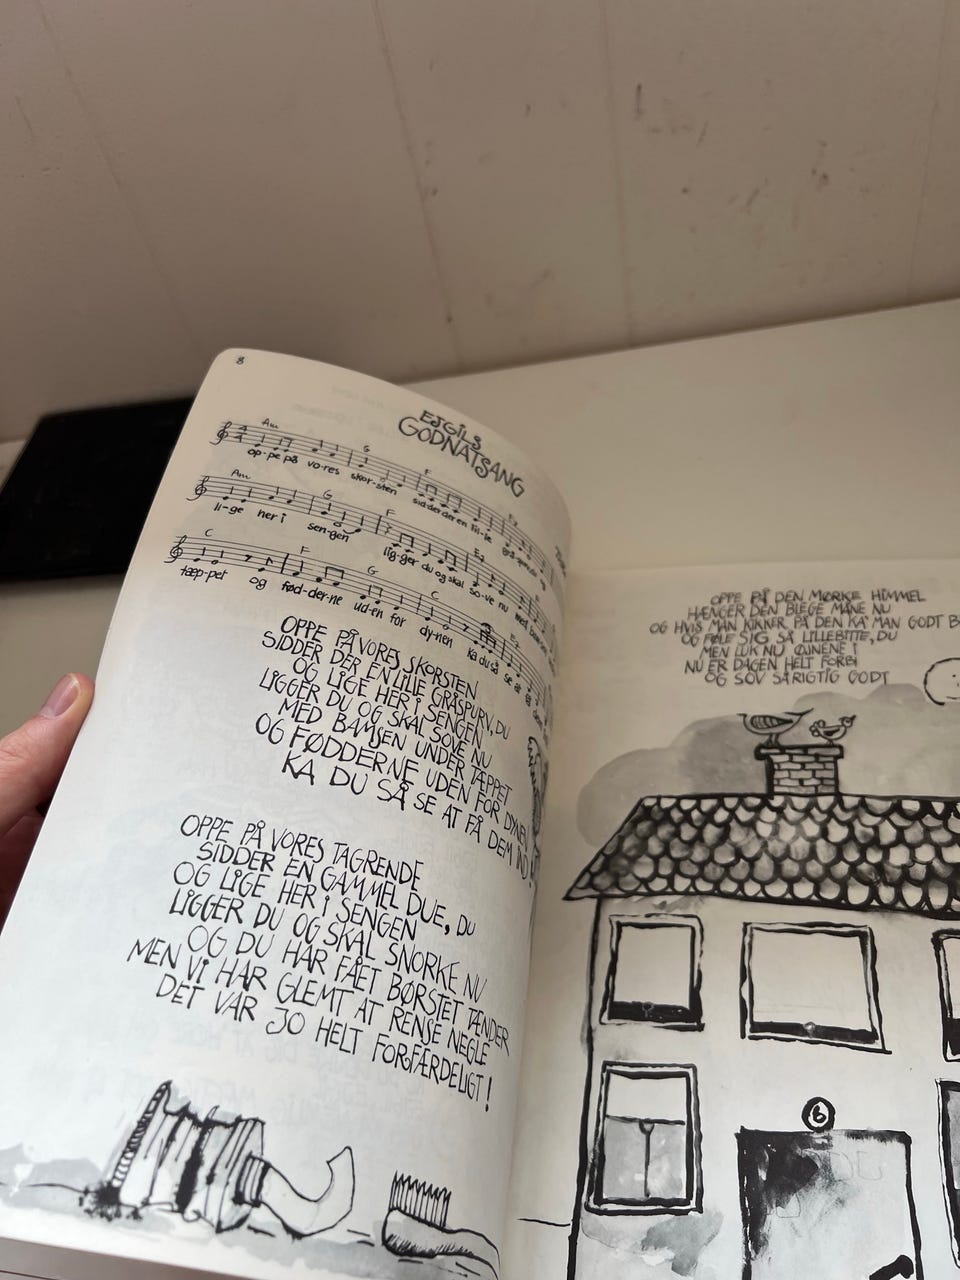 8
EJGILS
GODNATSANG
Am G F E7
op-pe på vo-res skor-sten sidder der en lil-le gråspurv, du og
Am G F E7
li-ge her i sen-gen lig-ger du og skal so-ve nu med bamsen
C F G C E7
tæp-pet og fød-der-ne ud-en for dy-nen ka du så se at
OPPE PÅ VORES SKORSTEN
SIDDER DER EN LILLE GRÅSPURV, DU
OG LIGE HER i SENGEN
LIGGER DU OG SKAL SOVE NU
MED BAMSEN UNDER TÆPPET
OG FØDDERNE UDEN FOR DYNEN
KA DU SÅ SE AT FÅ DEM IND!
OPPE PÅ VORES TAGRENDE
SIDDER EN GAMMEL DUE, DU
OG LIGE HER i SENGEN
LIGGER DU OG SKAL SNORKE NU
OG DU HAR FÅET BØRSTET TÆNDER
MEN VI HAR GLEMT AT RENSE NEGLE
DET VAR JO HELT FORFÆRDELIGT!
OPPE PÅ DEN MØRKE HIMMEL
HÆNGER DEN BLEGE MÅNE NU
OG HVIS MAN KIKKER PÅ DEN KA' MAN GODT B
OG FØLE SIG SÅ LILLEBITTE, DU
MEN LUK NU ØJNENE i
NU ER DAGEN HELT FORBi
OG SOV SÅ RIGTIG GODT
6